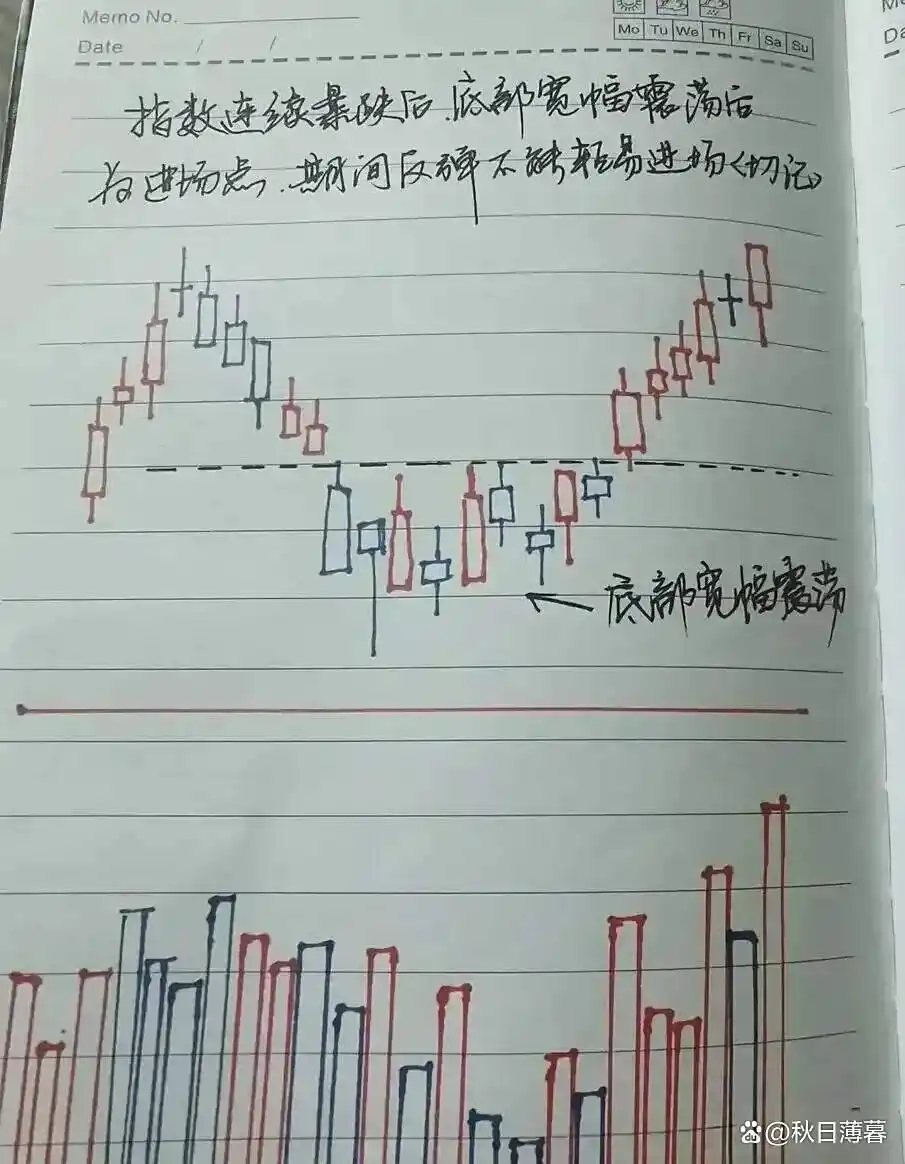 Memo No.
Mo Tu We Th Fr Sa Su
Date / /
指数连续暴跌后.底部宽幅震荡后
为进场点.期间反弹不能轻易进场《切记》
底部宽幅震荡
@秋日薄暮